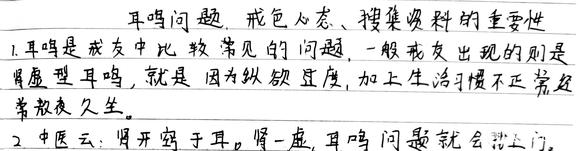 耳鸣问题、戒色心态、搜集资料的重要性
1.耳鸣是戒友中比较常见的问题,一般戒友出现的则是
肾虚型耳鸣,就是因为纵欲过度,加上生活习惯不正常经
常熬夜久坐。
2 中医云:肾开窍于耳。肾一虚,耳鸣问题就会找上门。